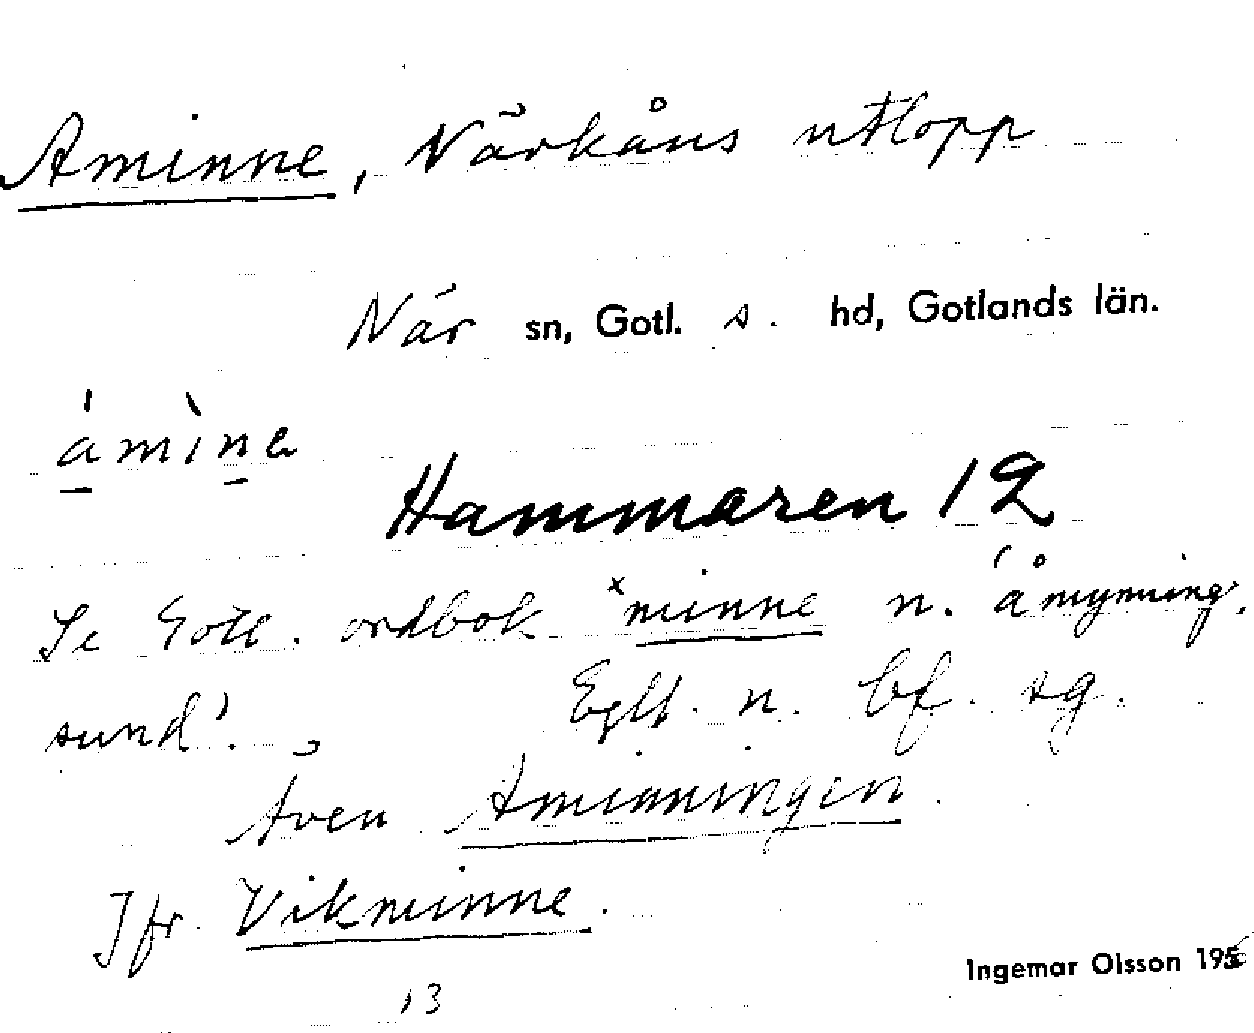 Åminne, Närkåns utlopp
När sn, Gotl. s. hd, Gotlands län.
ámìnα
Hammaren 12
Se Gotl. ordbok ×minne n. 'åmynning,
sund'. Eglt. n. bf. sg.
Även Åminningen.
Jfr Vikminne.
Ingemar Olsson 195
13